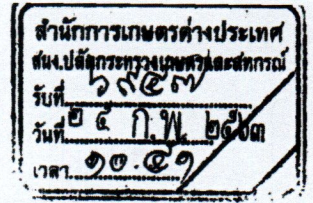 สำนักการเกษตรต่างประเทศ
สนง.ปลัดกระทรวงเกษตรและสหกรณ์
รับที่ ๖๙๕๗
วันที่ ๒๕ ก.พ. ๒๕๖๓
เวลา ๑๐.๕๑